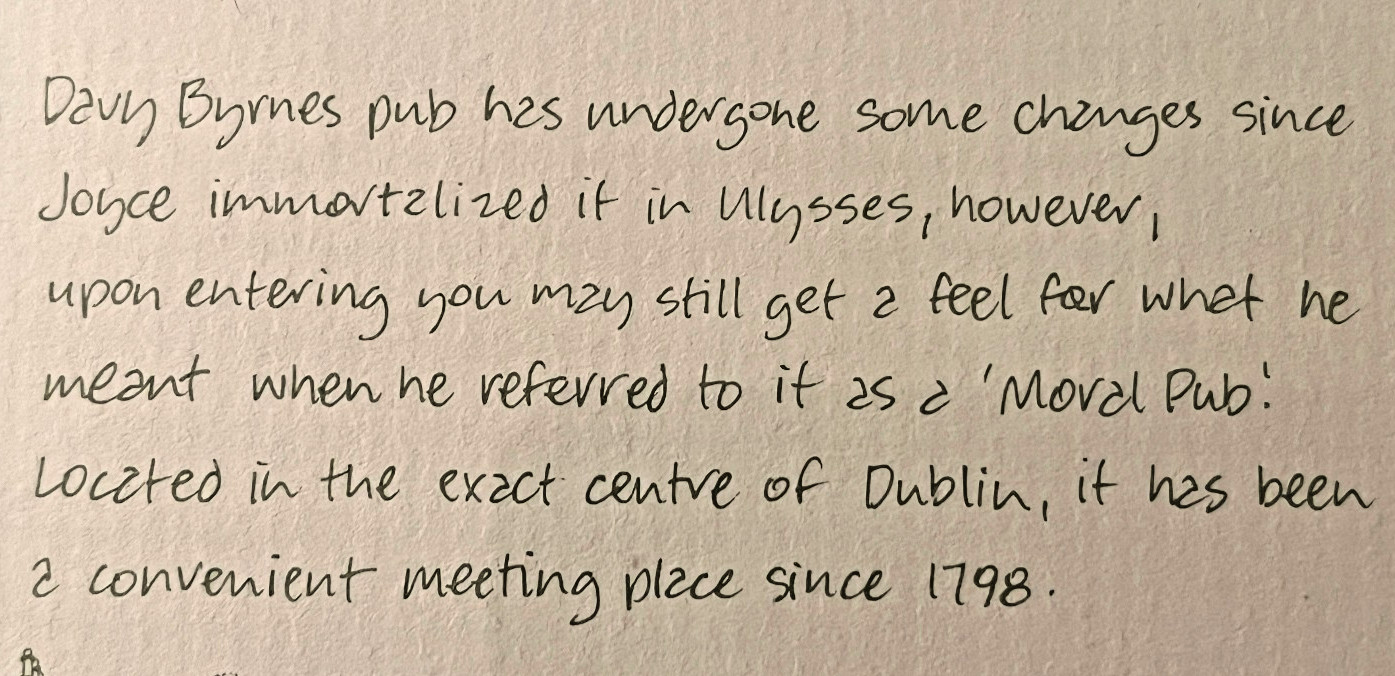 Davy Byrnes pub has undergone some changes since
Joyce immortalized it in Ulysses, however,
upon entering you may still get a feel for what he
meant when he referred to it as a 'Moral Pub'.
Located in the exact centre of Dublin, it has been
a convenient meeting place since 1798.